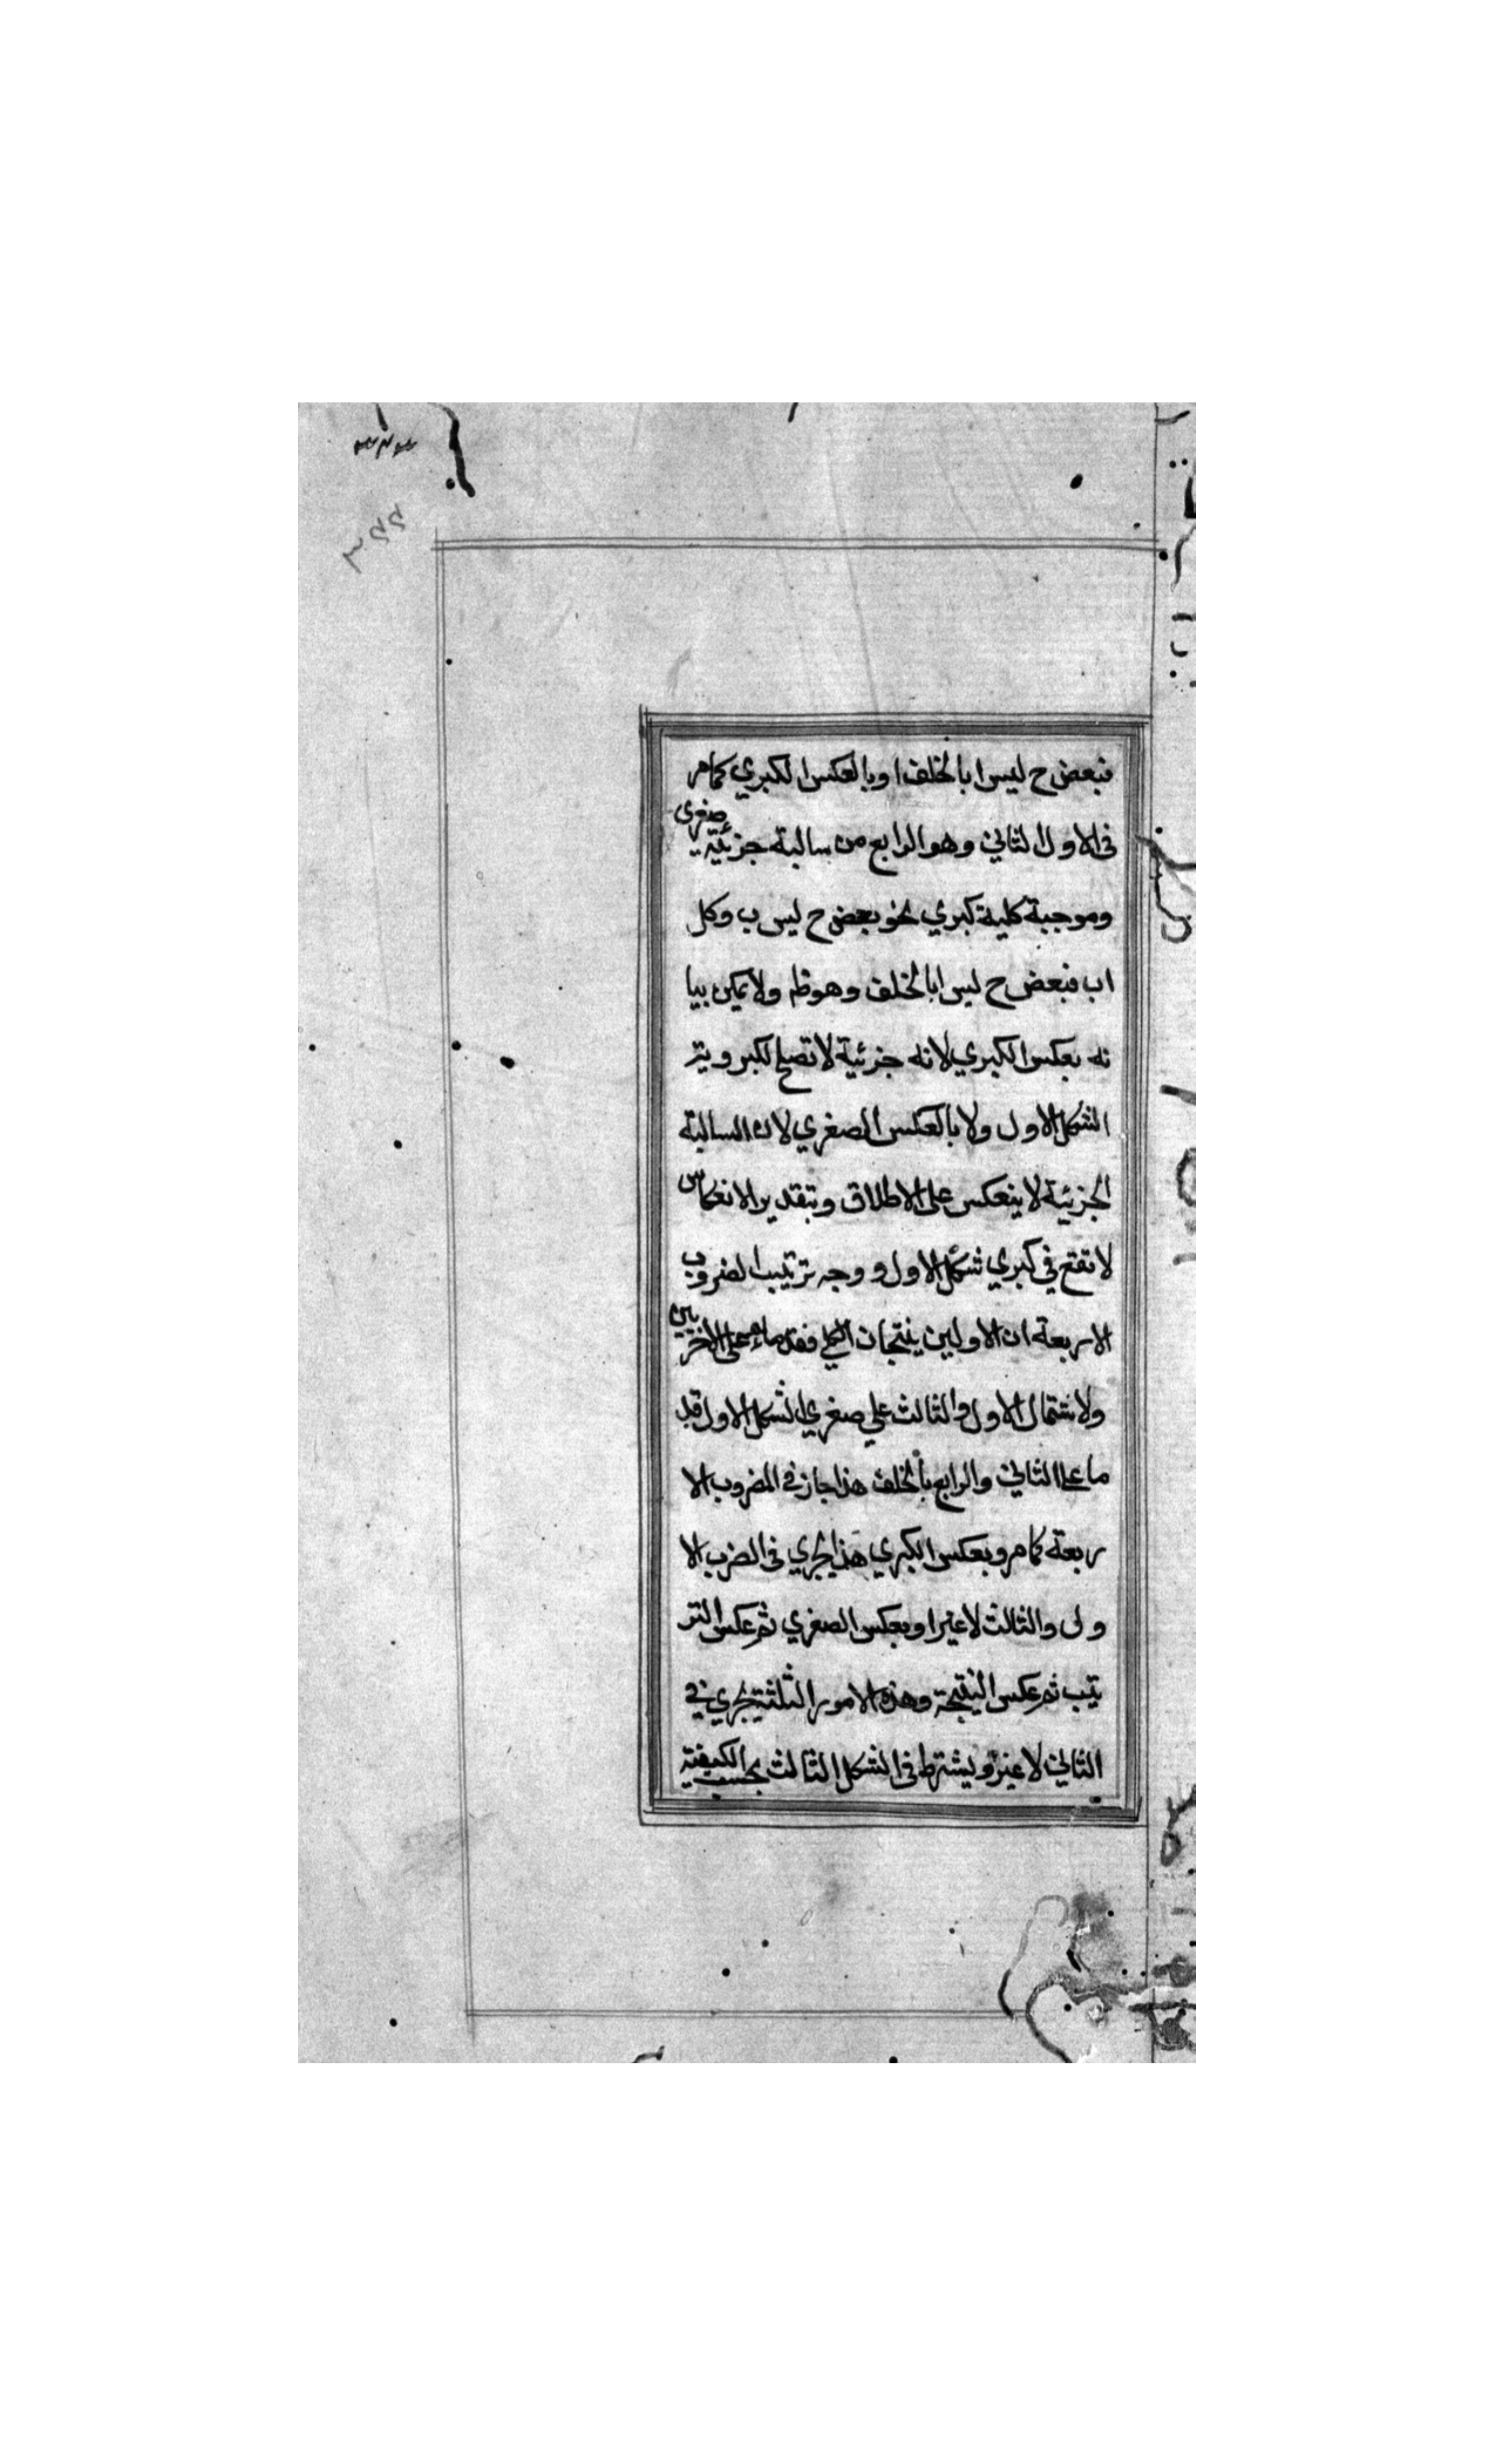 فبعض ح ليس ا بالخلف او بالعكس الكبري كما مر
فى الاول الثاني وهو الرابع من سالبة جزئية صغرى
وموجبة كلية كبري نحو بعض ح ليس ب وكل
ا ب فبعض ح ليس ا بالخلف وهو ظم ولا يمكن بيا
نه بعكس الكبري لانه جزئية لا تصلح لكبرويتر
الشكل الاول ولا بالعكس الصغري لان السالبة
الجزئية لا ينعكس على الاطلاق وبتقدير الانعكاس
لا تقع في كبري شكل الاول و وجه ترتيب الضروب
الاربعة ان الاولين ينتجان الكلي فقدما على الاخريين
ولاشتمال الاول والثالث علي صغري الشكل الاول قد
ما على الثاني والرابع بالخلف هذا جاز في المضروب الا
ربعة كما مر وبعكس الكبري هذا يجري فى الضرب الا
ول والثالث لا غير او بعكس الصغري ثم عكس التر
تيب ثم عكس النتيجة وهذه الامور الثلثة يجري في
الثاني لا غير ويشترط فى الشكل الثالث بحسب الكيفية